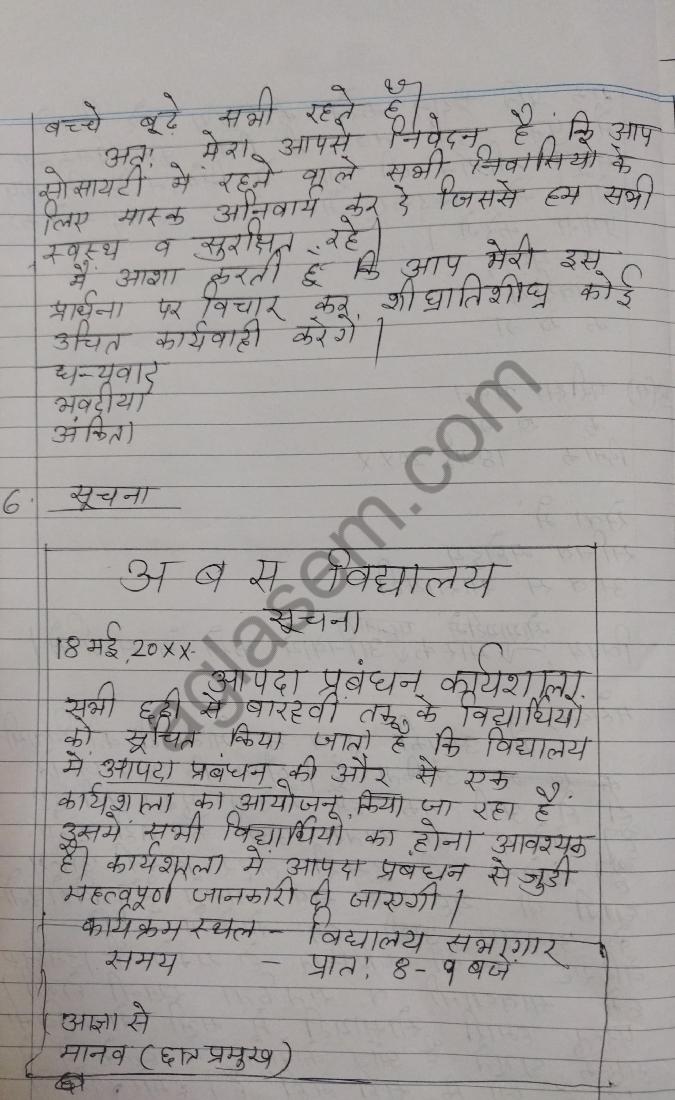 बच्चे बूढ़े सभी रहते हैं।
अतः मेरा आपसे निवेदन है कि आप
सोसायटी में रहने वाले सभी निवासियों के
लिए मास्क अनिवार्य कर दे जिससे हम सभी
स्वस्थ व सुरक्षित रहे।
मैं आशा करती हूँ कि आप मेरी इस
प्रार्थना पर विचार कर शीघ्रातिशीघ्र कोई
उचित कार्यवाही करेंगे।
धन्यवाद
भवदीया
अंकिता
6. सूचना
अ ब स विद्यालय
सूचना
18 मई, 20XX.
आपदा प्रबंधन कार्यशाला
सभी छठी से बारहवी तक के विद्यार्थियों
को सूचित किया जाता है कि विद्यालय
में आपदा प्रबंधन की और से एक
कार्यशाला का आयोजन किया जा रहा है
उसमें सभी विद्यार्थियों का होना आवश्यक
है। कार्यशाला में आपदा प्रबंधन से जुडी
महत्वपूर्ण जानकारी दी जाएगी।
कार्यक्रम स्थल - विद्यालय सभागार
समय - प्रातः 8-9 बजे
आज्ञा से
मानव (छात्र प्रमुख)
aglasem.com